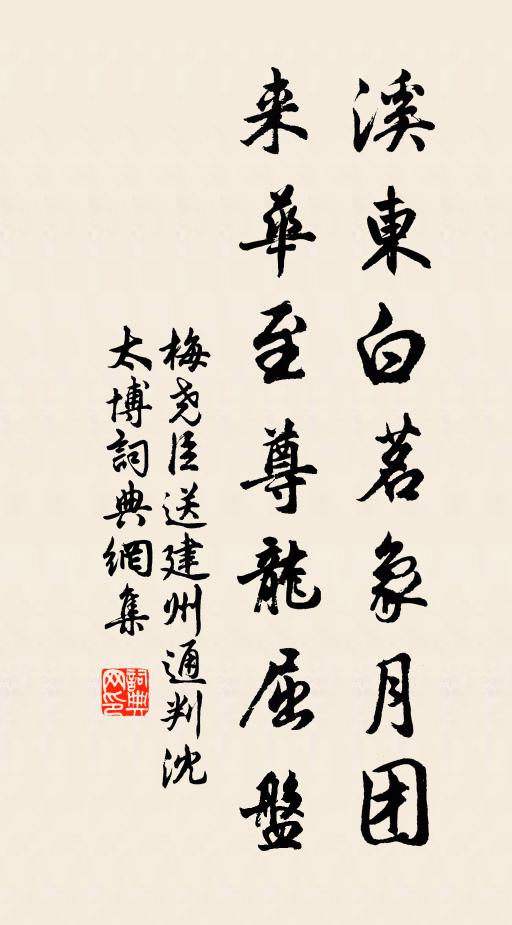 溪東白茗象月团
来華至尊龍屈盤
梅尧臣送建州通判沈
太博詞典網集
詞典网印